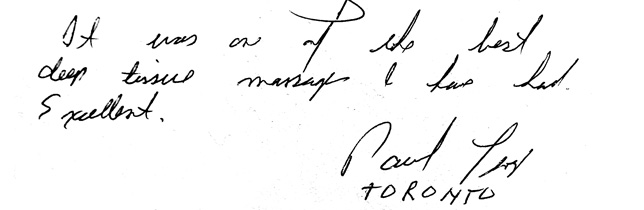 It was on of the best
deep tissue massage I have had.
Excellent.
Paul
TORONTO